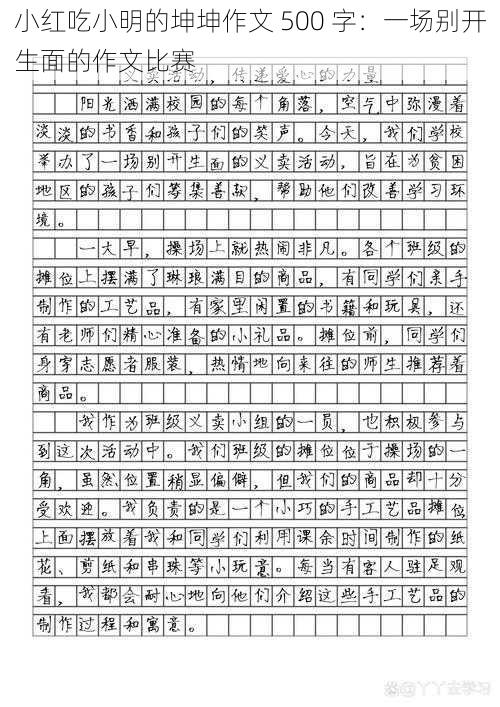 小红吃小明的坤坤作文 500 字：一场别开
生面的作文比赛
义卖活动，传递爱心的力量
阳光洒满校园的每个角落，空气中弥漫着
淡淡的书香和孩子们的笑声。今天，我们学校
举办了一场别开生面的义卖活动，旨在为贫困
地区的孩子们筹集善款，帮助他们改善学习环
境。
一大早，操场上就热闹非凡。各个班级的
摊位上摆满了琳琅满目的商品，有同学们亲手
制作的工艺品，有家里闲置的书籍和玩具，还
有老师们精心准备的小礼品。摊位前，同学们
身穿志愿者服装，热情地向来往的师生推荐着
商品。
我作为班级义卖小组的一员，也积极参与
到这次活动中。我们班级的摊位位于操场的一
角，虽然位置稍显偏僻，但我们的商品却十分
受欢迎。我负责的是一个小巧的手工艺品摊位
上面摆放着我和同学们利用课余时间制作的纸
花、剪纸和串珠等小玩意。每当有客人驻足观
看，我都会耐心地向他们介绍这些手工艺品的
制作过程和寓意。
@丫丫去学习